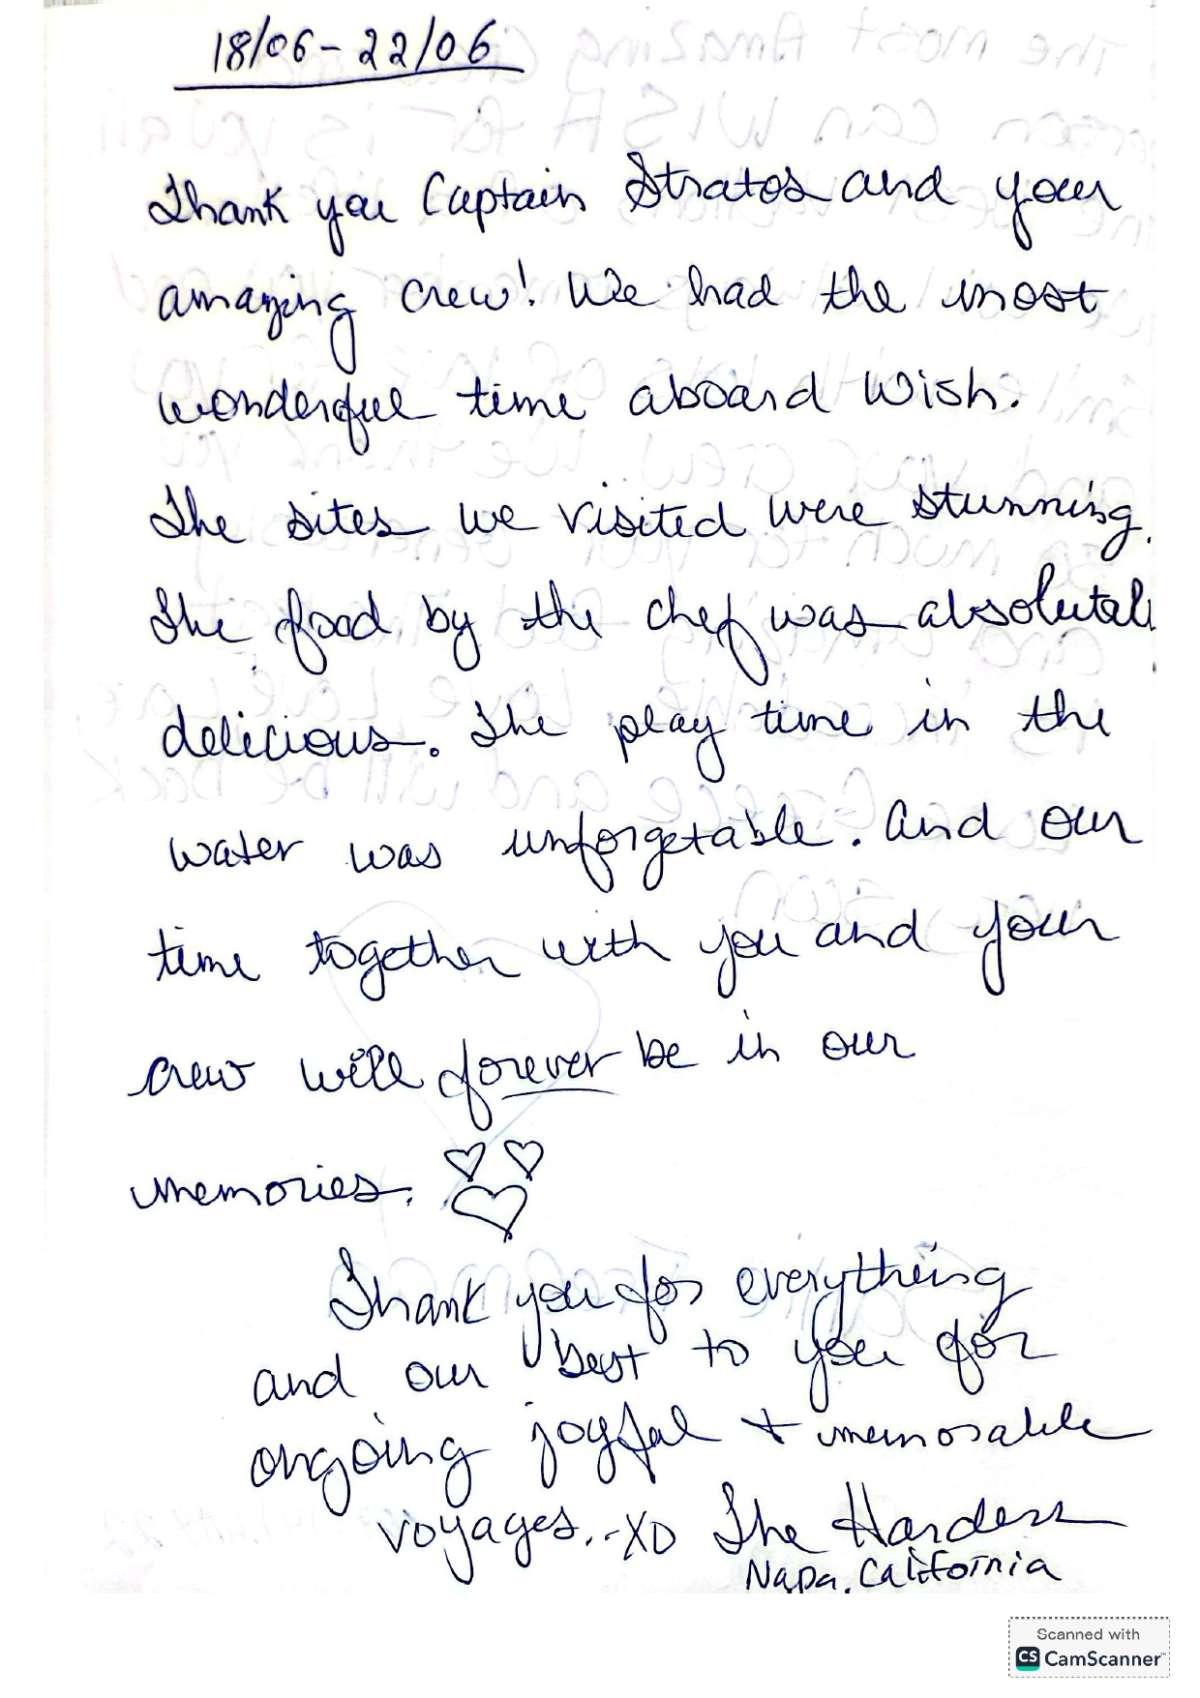 18/06 - 22/06
Thank you Captain Stratos and your
amazing crew! We had the most
wonderful time aboard Wish.
The sites we visited were stunning.
The food by the chef was absolutel
delicious. The play time in the
water was unforgetable. And our
time together with you and your
crew will forever be in our
memories.
Thank you for everything
and our best to you for
ongoing joyful + memorable
voyages. -XO The Harders
Napa, California
Scanned with
CS CamScanner